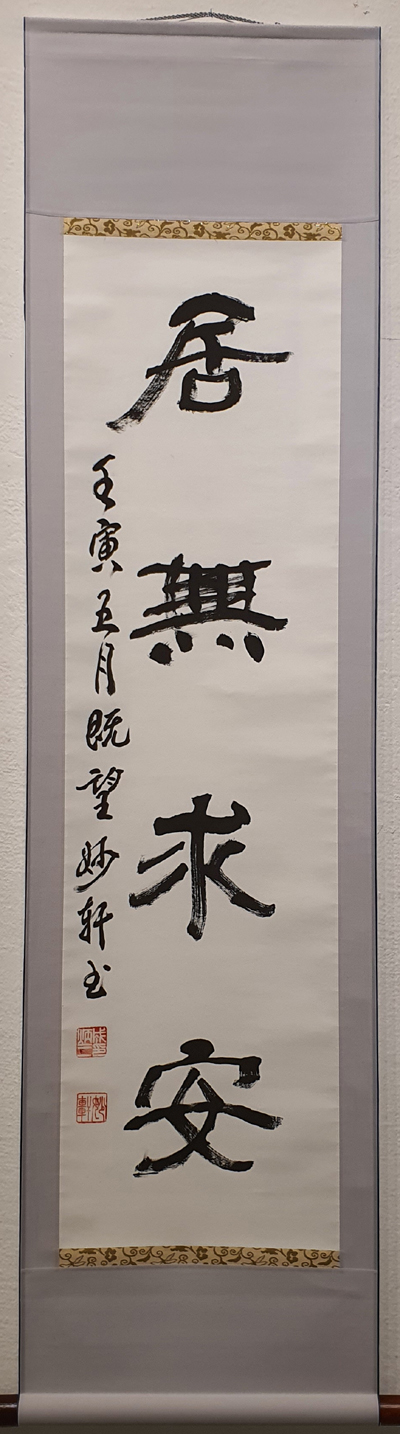 居無求安
壬寅五月既望妙軒书